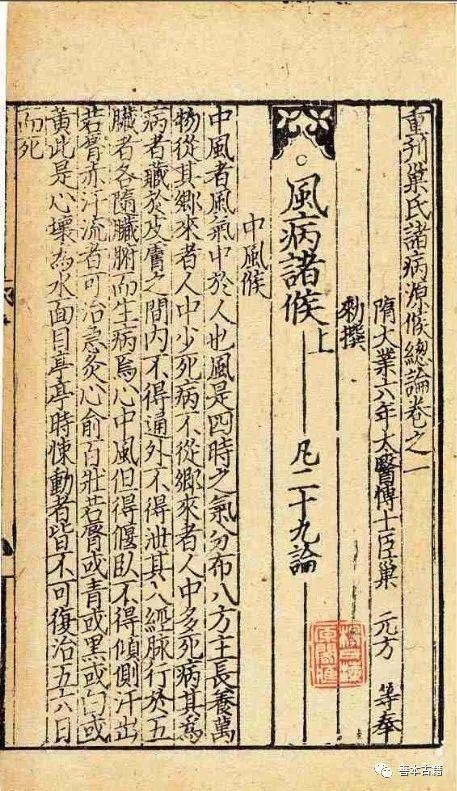 重刊巢氏諸病源候總論卷之一
隋大業六年太醫博士臣巢 元方 等奉
勑撰
風病諸候上 凡二十九論
中風候
中風者風氣中於人也風是四時之氣分布八方主長養萬
物從其鄉來者人中少死病不從鄉來者人中多死病其為
病者藏於皮膚之間內不得通外不得泄其入經脉行於五
臟者各隨臟腑而生病焉心中風但得偃臥不得傾側汗出
若唇赤汗流者可治急灸心俞百壯若唇或青或黑或白或
黃此是心壞為水面目亭亭時悚動者皆不可復治五六日
而死
善本古籍